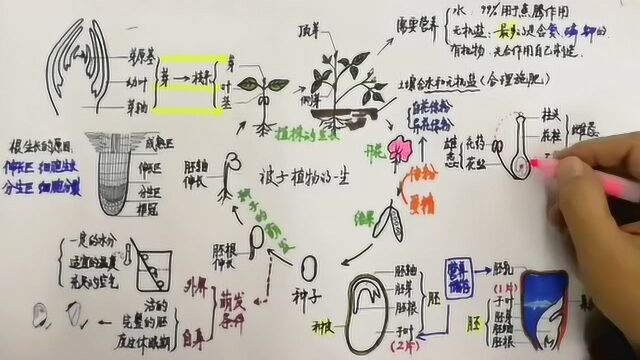 顶芽
侧芽
需要营养
水：99%用于蒸腾作用
无机盐：最多的是含氮磷钾的
有机物：光合作用自己制造
土壤含水和无机盐(合理施肥)
芽原基
幼叶
芽轴
芽
枝条
芽
叶
茎
植株的生长
自花传粉
异花传粉
开花
雄蕊
花药
花丝
柱头
花柱
传粉
受精
结果
根生长的原因:
伸长区 细胞生长
分生区 细胞分裂
成熟区
伸长区
分生区
根冠
胚轴
伸长
被子植物的一生
种子的萌发
胚根
伸长
种子
一定的水分
适宜的温度
充足的空气
外界
自身
萌发
条件
活的
完整的胚
度过休眠期
种皮
胚轴
胚芽
胚根
子叶
(2片)
胚
营养
储存
胚乳
(1片)
子叶
胚芽
胚轴
胚根
胚